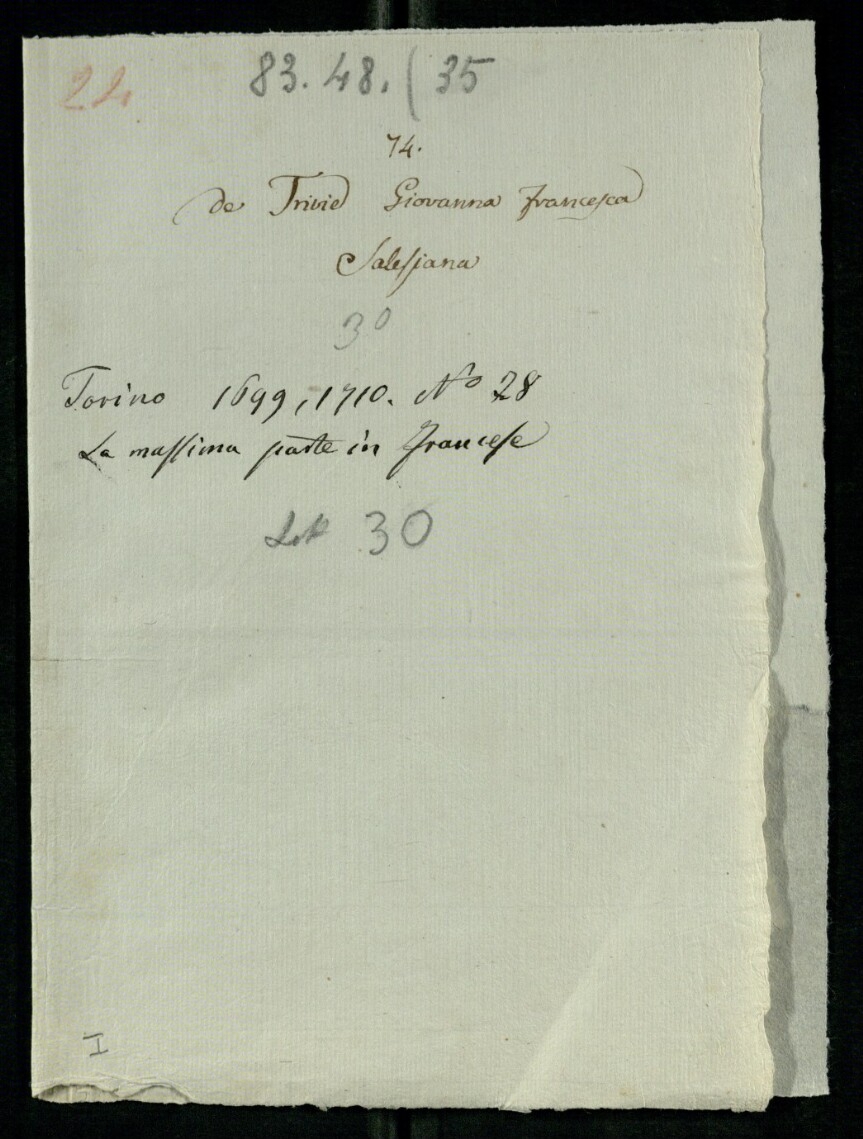 24
83. 48. ( 35
74.
de Trivié Giovanna Francesca
Salesiana
30
Torino 1699, 1710. No 28
La massima parte in francese
30
I